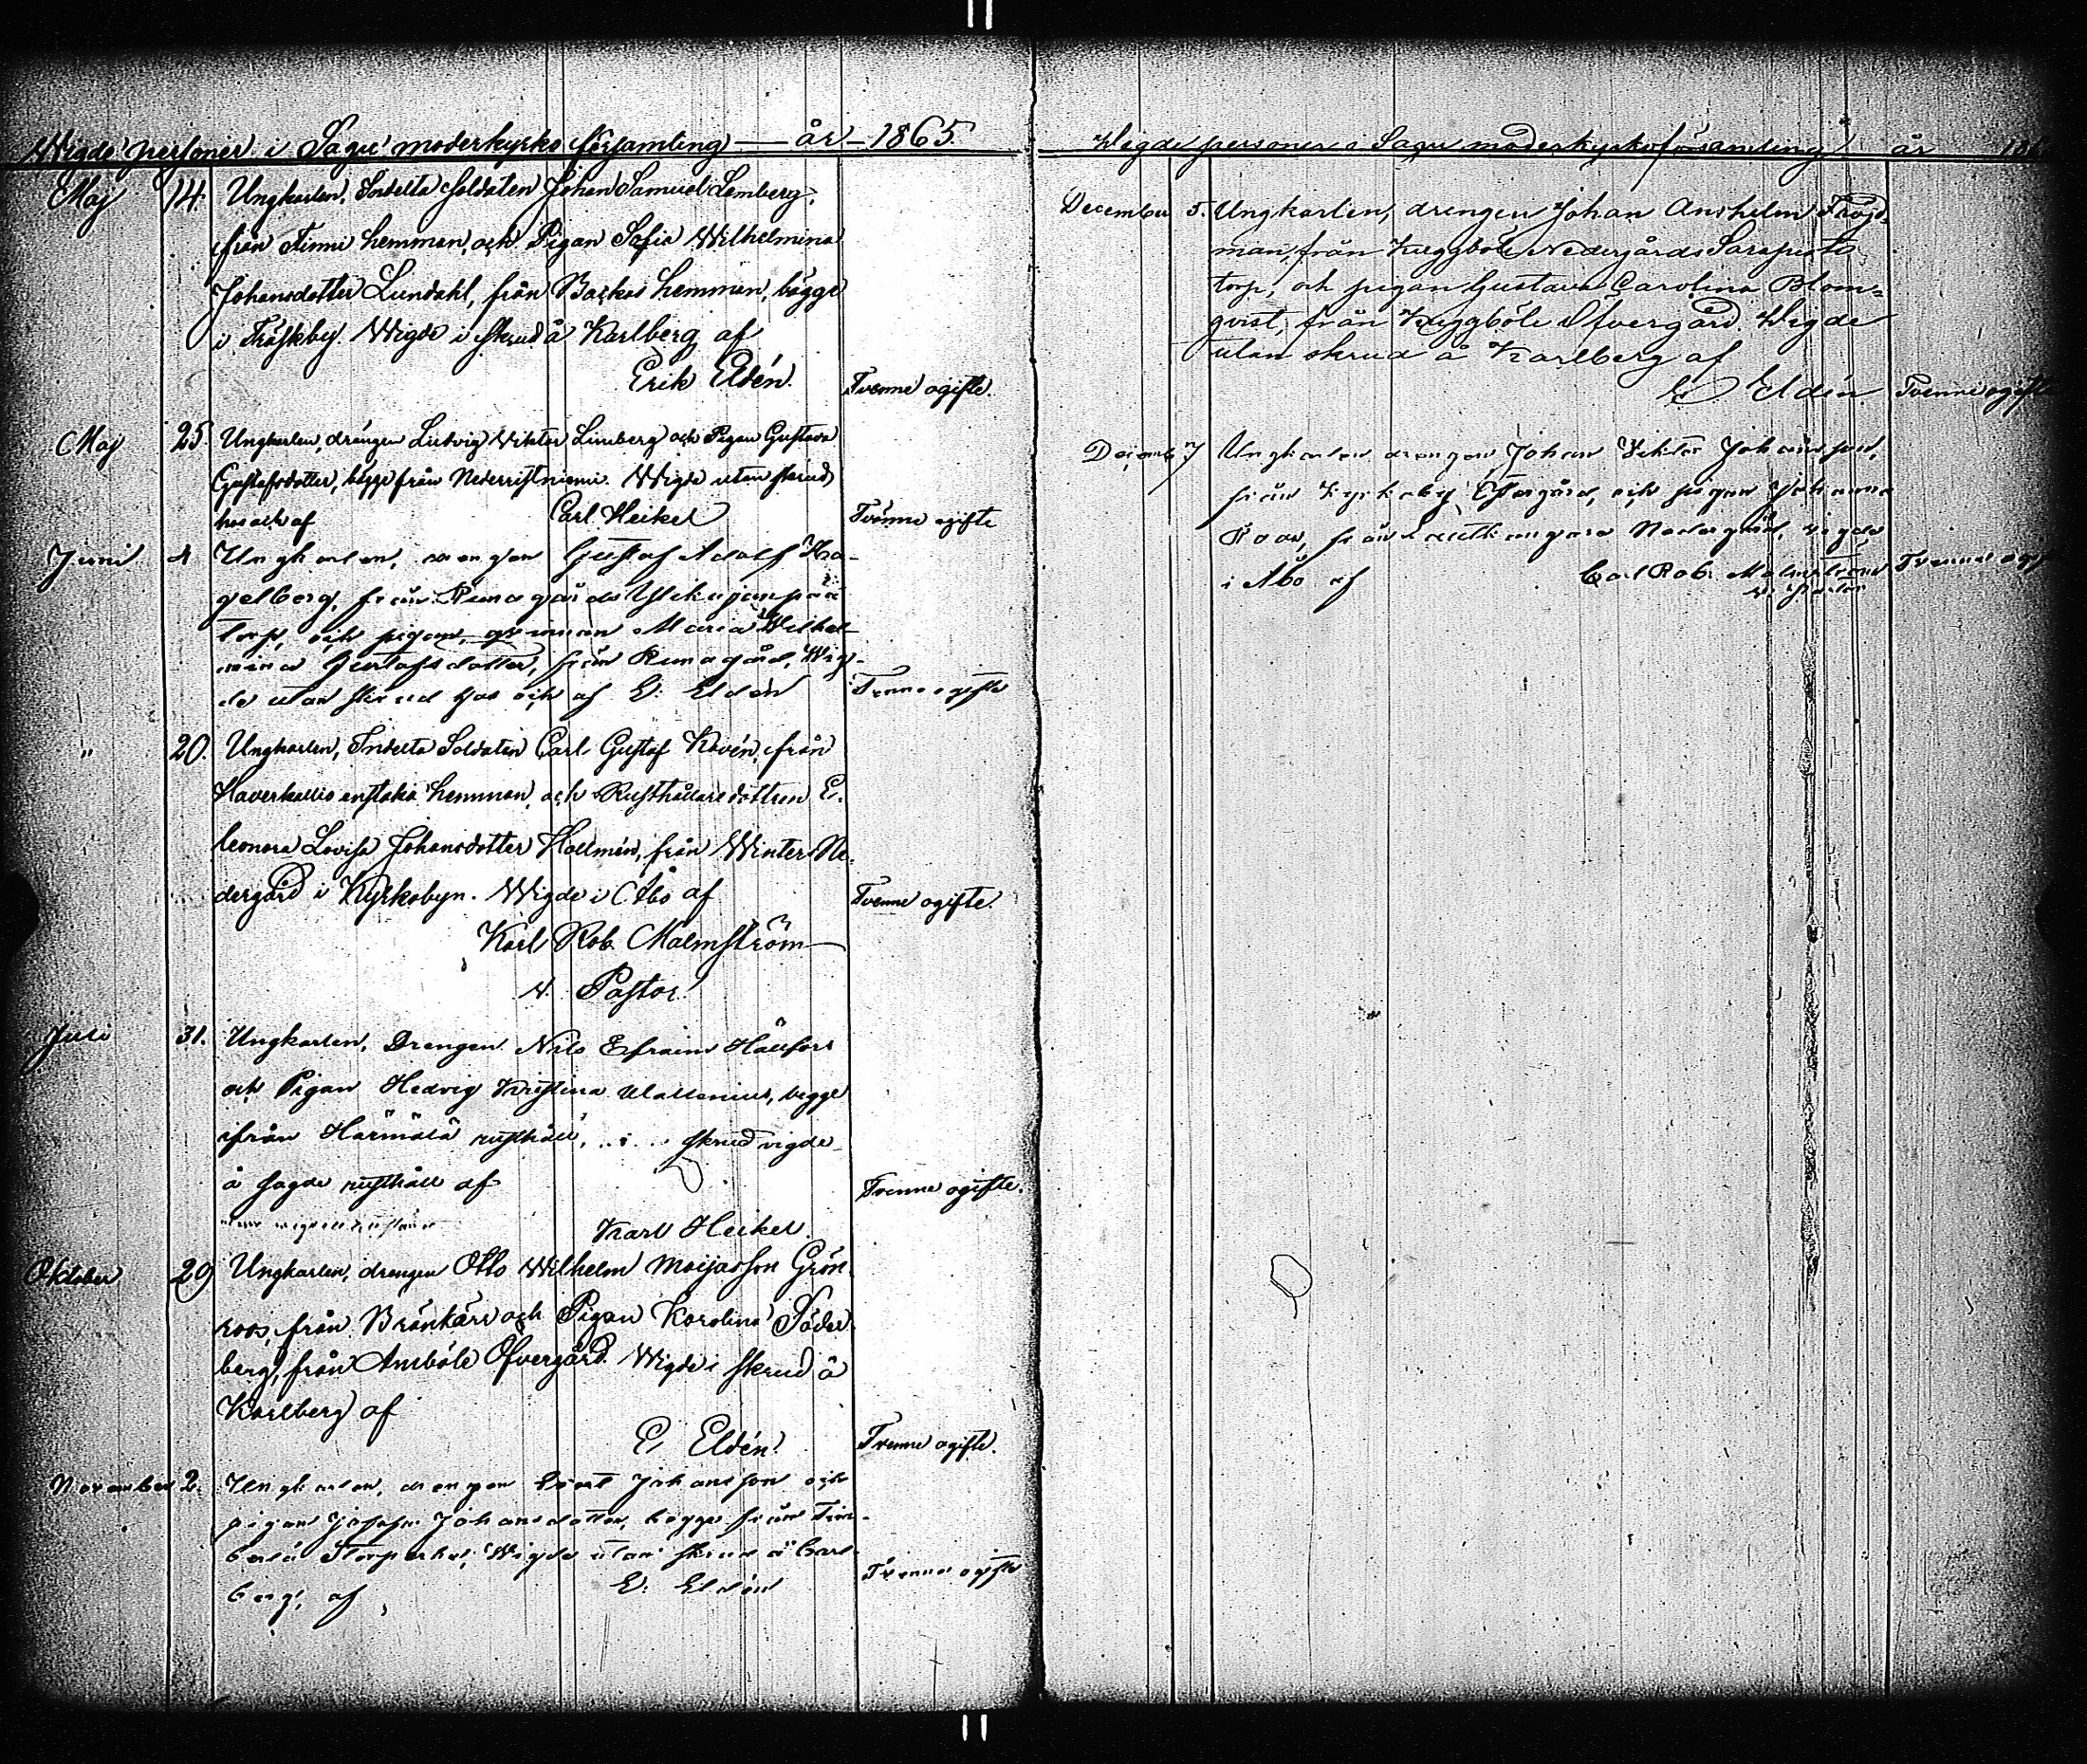 Wigde personer i Sagu moderkyrko församling år 1865.
Maj 14. Ungkarlen, Indelta Soldaten Johan Samuel Lemberg,
från Finni hemman, och Pigan Sofia Wilhelmina
Johansdotter Lundahl, från Backas hemman, bägge
i Träskby. Wigde i skrud å Karlberg af
Erik Eldén. Tvenne ogifte.
Maj 25 Ungkarlen, drängen Ludvig Viktor Limberg och Pigan Gustava
Gustafsdotter, bägge från Nederristniemi. Wigde utan skrud
hos och af Carl Heikel Tvänne ogifte
Juni 4 Ungkarlen, drengen Gustaf Adolf Ha-
gelberg, från Rumagårds
torp, och pigan, Maria Wilhel-
mina Gustafsdotter, från Rumagård, Wig-
de utan skrud hos och af E. Eldén Tvenne ogifte
" 20. Ungkarlen, Indelta Soldaten Carl Gustaf Kovén, från
Haverkallio enstaka hemman, och Rusthållaredottren E-
leonora Lovisa Johansdotter Hallmén, från Winter Ne-
dergård i Kyrkobyn. Wigde i Åbo af Tvenne ogifte.
Karl Rob. Malmström
v. Pastor
Juli 31. Ungkarlen, Drengen Nils Efraim Hällfors
och Pigan Hedvig Kristina Wallenius, begge
ifrån Härmälä rusthåll, i skrud vigde
å sagde rusthåll af Tvenne ogifte.
Karl Heikel.
Oktober 29 Ungkarlen, drengen Otto Wilhelm Maijasson Grön
roos, från Bränkärr och Pigan Karolina Söder
berg, från Ansböle Öfvergård. Wigde i skrud å
Karlberg af
E Eldén. Tvenne ogifte.
November 2. Ungkarlen, drengen Evert Johansson och
pigan Josefa Johansdotter, bägge från Tim-
berlä Storperkel, Wigde utan skrud å Carl-
berg, af E. Eldén Tvenne ogifte
Wigde personer i Sagu moderkyrkoförsamling år
December 5. Ungkarlen, drengen Johan Anshelm
man, från Kuggböle Nedergårds
torp, och pigan Gustava Carolina Blom-
qvist, från Kuggböle Öfvergård. Wigde
utan skrud å Karlberg af
E Eldén Tvenne ogifte
Decemb. 7 Ungkarlen drengen Johan Viktor Johansson,
från Kyrkoby Öfvergård, och pigan Johanna
Roos, från Nedergård, vigde
i Åbo af Carl Rob. Malmström Tvenne
v. Pastor